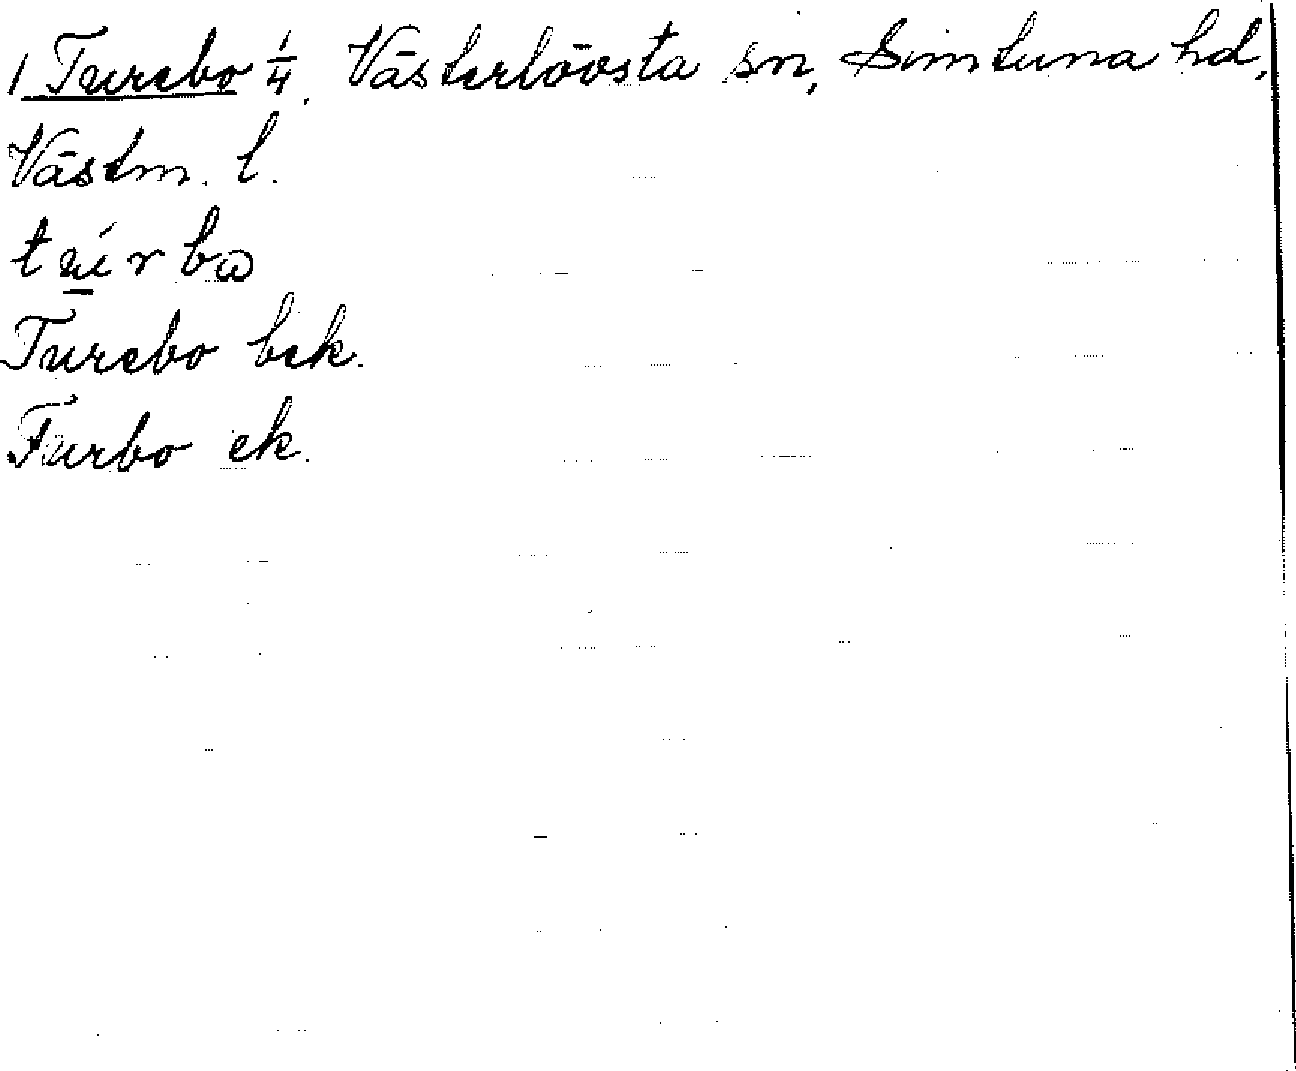 1 Turebo 1/4. Västerlövsta sn, Simtuna hd,
Västm. l.
tú̱rbω
Turebo bek.
Turbo ek.